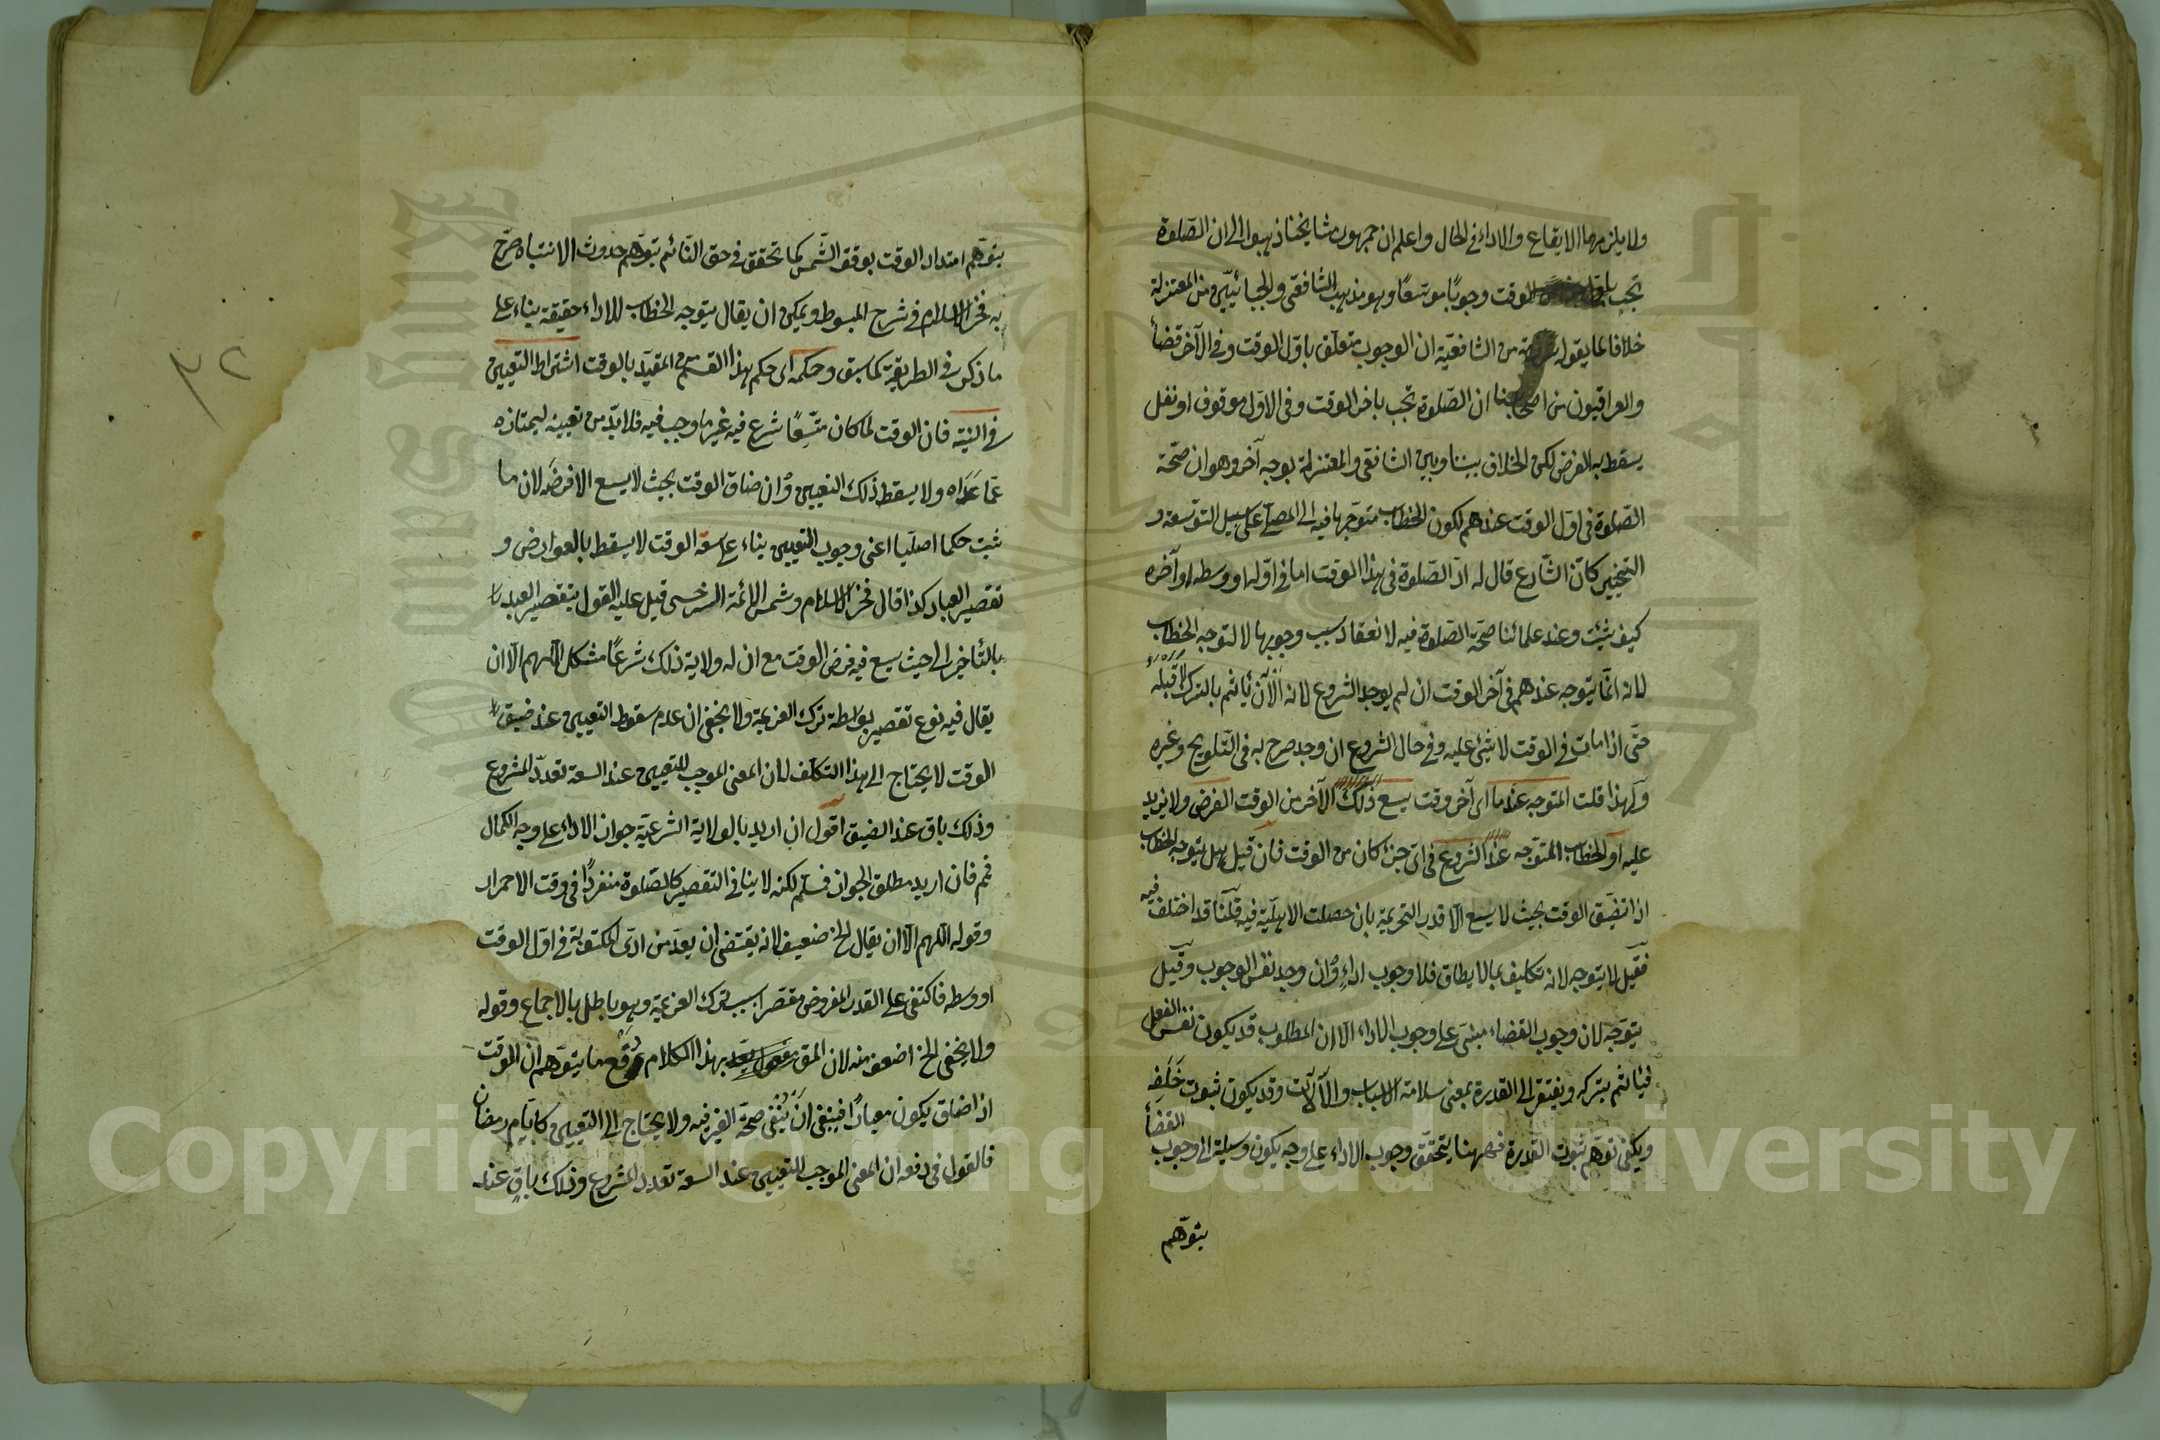 ولا يلزمهما الايقاع والاداء في الحال واعلم ان جمهور مشايخنا ذهبوا الى ان الصلوة
تجب باول الوقت وجوبًا موسّعًا وهو مذهب الشافعي والجبائيين من المعتزلة
خلافا لما يقوله من الشافعيّة ان الوجوب متعلّق باوّل الوقت وفي الآخر قضأ
والعراقيون من اصحابنا ان الصّلوة تجب باخر الوقت وفي الاوّل موقوف او نفل
يسقط به الفرض لكن الخلاف بيننا وبين الشافعي والمعتزلة بوجه آخر وهو ان صحّة
الصّلوة في اوّل الوقت عندهم لكون الخطاب متوجّها فيه الى المصلّى على سبيل التوسعة و
التخيير كانّ الشّارع قال له ادّ الصّلوة في هذا الوقت اما في اوّله او وسطه او آخره
كيف شئت وعند علمائنا صحّة الصّلوة فيه لانعقاد سبب وجوبها لا لتوجه الخطاب
لانه انّما يتوجه عندهم في آخر الوقت ان لم يوجد الشروع لانه الآن يأثم بالترك لا قبله
حتّى اذا مات في الوقت لا شئ عليه وفي حال الشروع ان وجد صرح به في التّلويح وغيره
ولهذا قلت المتوجه عندما اى آخر وقت يسع ذلك الآخر من الوقت الفرض ولا يزيد
عليه او الخطاب المتوّجه عند الشروع في اىّ جزء كان من الوقت فان قيل هل يتوجه الخطاب
اذا تضيّق الوقت بحيث لا يسع الّا قدر التحريمة بان حصلت الاهليّة فيه قلنا قد اختلف فيه
فقيل لا يتوجه لانه تكليف بما لا يطاق فلا وجوب اداءٍ وٕان وجد نفس الوجوب وقيل
يتوجّه لان وجوب القضاء مبنىّ على وجوب الاداء الّا ان المطلوب قد يكون نفس الفعل
فيأثم بتركه ويفتقر الى القدرة بمعنى سلامة الاسباب والآلات وقد يكون ثبوت خَلَفِه
ويكفى توهّم ثبوت القدرة فههنا يتحقّق وجوب الاداء على وجه يكون وسيلة الى وجوب القضأ
بتوهّم
بتوهّم امتداد الوقت بوقف الشّمس كما تحقق في حق النّائم بتوهّم حدوث الانتباه صرّح
به فخر الاسلام في شرح المبسوط ويمكن ان يقال يتوجه الخطاب للاداء حقيقة بناء على
ما ذكر في الطريقة كما سبق وحكمه اى حكم هذا القسم من المقيّد بالوقت اشتراط التعيين
في النيّة فان الوقت لما كان متّسعًا شرع فيه غير ما وجب فيه فلا بدّ من تعيينه ليمتاز به
عمّا عَدَاه ولا يسقط ذلك التعيين وٕان ضاق الوقت بحيث لا يسع الا فرضَه لان ما
ثبت حكما اصليّا اعنى وجوب التعيين بناء على سعة الوقت لا يسقط بالعوارض و
تقصير العباد كذا قال فخر الاسلام وشمس الائمة السرخسى قيل عليه القول بتقصير العبد
بالتّأخير الى حيث يسع فيه فرض الوقت مع ان له ولاية ذلك شرعًا مشكل اللّهم الّا ان
يقال فيه نوع تقصير بواسطة ترك العزيمة ولا يخفى ان عدم سقوط التعيين عند ضيق
الوقت لا يحتاج الى هذا التكلّف لان المعنى الموجب للتعيين عند السعة تعدّد المشروع
وذلك باق عند الضيق اقول ان اريد بالولاية الشرعيّة جواز الاداء على وجه الكمال
فم فان اريد مطلق الجواز فسلّم لكنه لا ينافي التقصير كالصّلوة منفردًا في وقت الاحمرار
وقوله اللّهم الّا ان يقال الخ ضعيف لانه يقتضى ان يعدّ من ادّى المكتوبة في اوّل الوقت
او وسطه فاكتفى على القدر المفروض مقصّرا بسبب ترك العزيمة وهو باطل بالاجماع وقوله
ولا يخفى الخ اضعف منه لان المق بهذا الكلام دفع ما يتوّهم ان الوقت
اذا ضاق يكون معيارًا فينبغى ان يُنْفَى صحّة الغير فيه ولا يحتاج الى التعيين كايّام رمضان
فالقول في دفعه ان المعنى الموجب للتعيين عند السعة تعدد المشروع وذلك باقٍ عند
٣٢
Copyright © King Saud University